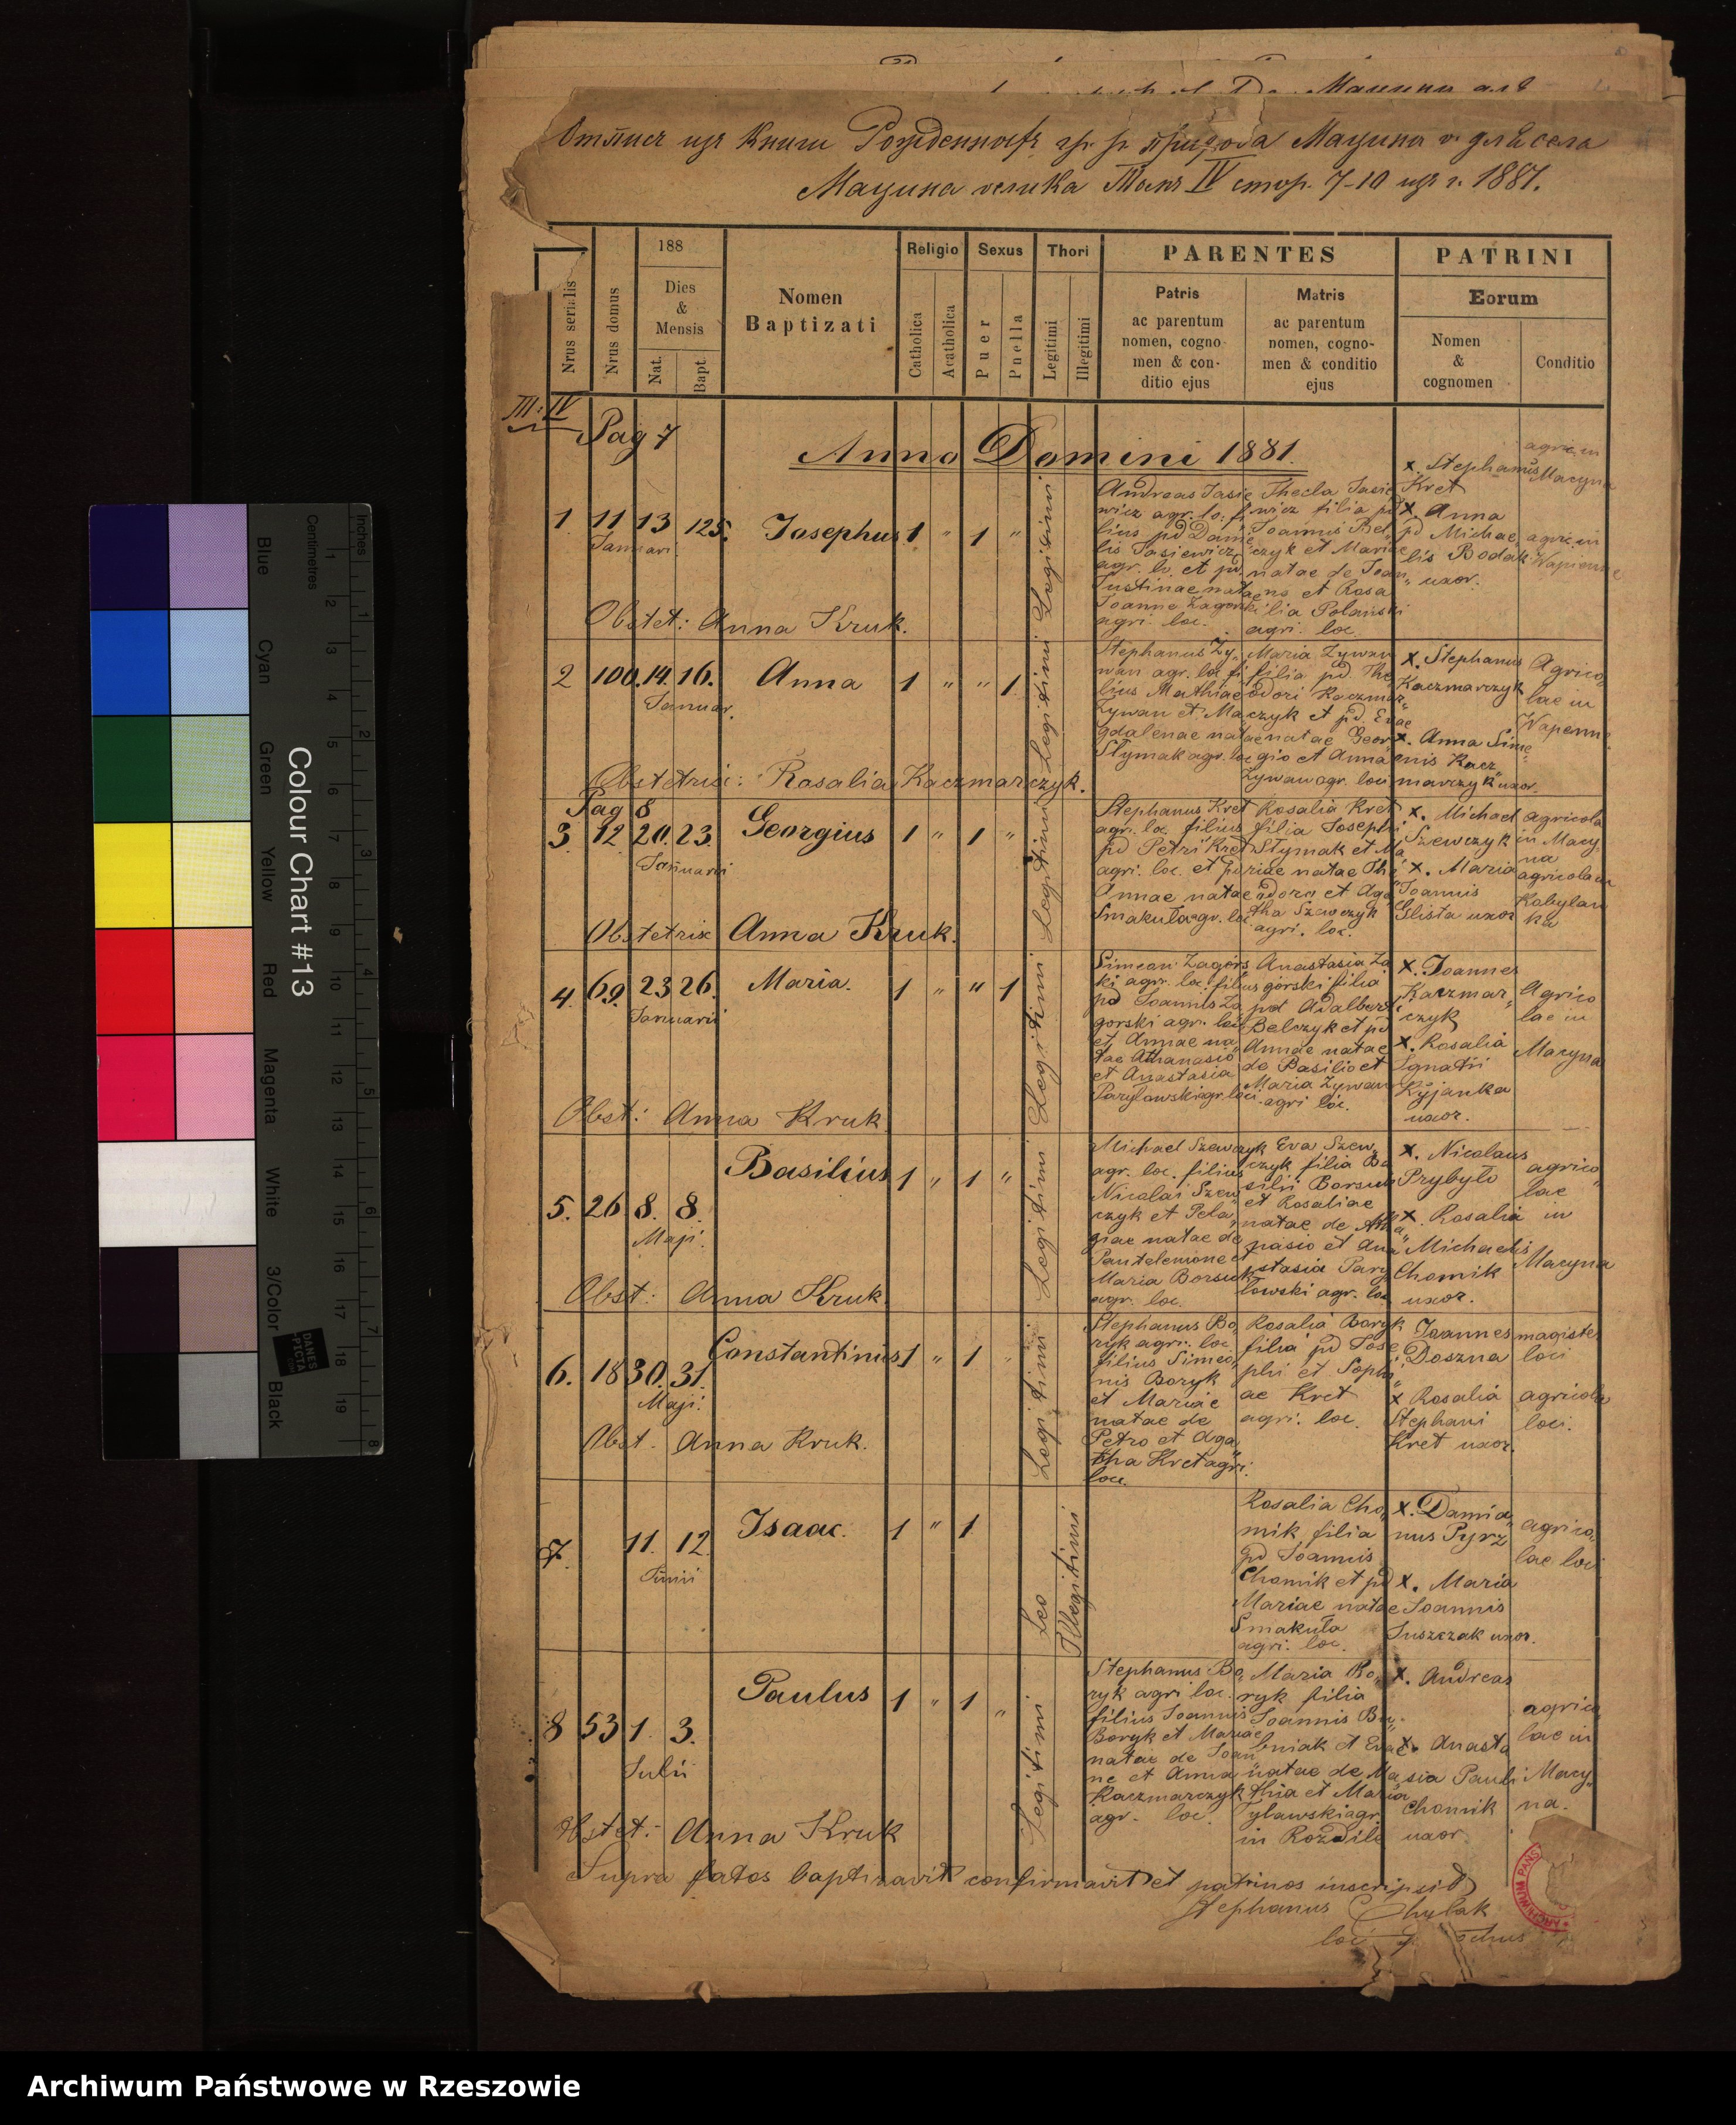 Отпись изъ Книги гр. Мацина для села
Мацина велика Томъ IV стор. 7-10 изъ г. 1881.
Nrus serialis
Nrus domus
188
Dies
&
Mensis
Nat.
Bapt
Nomen
Baptizati
Religio
Catholica
Acatholica
Sexus
Puer
Puella
Thori
Legitimi
Illegitimi
PARENTES
Patris
ac parentum
nomen, cogno-
men & con-
ditio ejus
Matris
ac parentum
nomen, cogno-
men & conditio
ejus
PATRINI
Eorum
Nomen
&
cognomen
Conditio
Pag 7
Anno Domini 1881.
1 11 13 Josephus 1 " 1 "
Januari
Legitimi
Andreas Jasie
wicz agr. lo. fi
lius pd Danie
lis Jasiewicz
agr. lo. et pd.
Justinae nata
Joanne Zagorski
agri. loc.
Thecla Jasie
wicz filia pd
Joannis Bel
czyk et Mariae
natae de Joan
ne et Rosa
lia Polanski
agri. loc.
x. Stephanus
Kret
x. Anna
pd Michae
lis Bodak
uxor.
agric. in
Macyna
agric. in
Wapienne
Obstet: Anna Kruk.
2 100. 14. 16. Anna 1 " " 1
Januar.
Legitimi
Stephanus Zy
wan agr. lo. fi
lius Mathiae
Zywan et Ma
gdalenae natae
Stymak agr. loc
Maria Zywan
filia pd. The
odori Kaczmar
czyk et pd. Evae
natae Geor
gio et Anna
Zywan agr. loci
x. Stephanus
Kaczmarczyk
x. Anna Sime
onis Kacz
marczyk uxor.
Agrico
lae in
Wapienne
Obstetrix: Rosalia Kaczmarczyk.
Pag 8
3 12 20. 23. Georgius 1 " 1 "
Januarii
Legitimi
Stephanus Kret
agr. lo. filius
pd Petri Kret
agri. loc. et pd
Annae natae
Smakuła agr. loc
Rosalia Kret
filia Josephi
Stymak et Ma
riae natae The
odoro et Aga
tha Szewczyk
agri. loc.
x. Michael
Szewczyk
x. Maria
Joannis
Glista uxor
agricola
in Macy
na
agricola in
Kobylan
ka
Obstetrix Anna Kruk.
4. 69. 23 26. Maria. 1 " " 1
Januarii
Legitimi
Simeon Zagors
ki agr. loc. filius
pd Joannis Za
gorski agr. loci
et Annae na
tae Athanasio
et Anastasia
Parylowski agr. loci
Anastasia Za
gorski filia
pd Adalberti
Belczyk et pd
Annae natae
de Basilio et
Maria Zywan
agri loc.
x. Joannes
Kaczmar
czyk
x. Rosalia
Ignatii
Kyjanka
uxor.
Agrico
lae in
Macyna
Obst: Anna Kruk
5. 26 8. 8. Basilius 1 " 1 "
Maji.
Legitimi
Michael Szewczyk
agr. loc. filius
Nicolai Szew
czyk et Pela
giae natae de
Pantelemone et
Maria Borsuk
agr. loc.
Eva Szew
czyk filia Ba
silii Borsuk
et Rosaliae
natae de Atha
nasio et Ana
stasia Pary
lowski agr. loc
x. Nicolaus
Prybyło
x. Rosalia
Michaelis
Chomik
uxor.
agrico
lae
in
Macyna
Obst: Anna Kruk
6. 18 30. 31. Constantinus 1 " 1 "
Maji.
Legitimi
Stephanus Bo
ryk agri. loc
filius Simeo
nis Boryk
et Mariae
natae de
Petro et Aga
tha Kret agri.
loci.
Rosalia Boryk
filia pd Jose
phi et Sophi
ae Kret
agri. loc.
Joannes
Doszna
x Rosalia
Stephani
Kret uxor.
magister
loci
agricola
loci.
Obst. Anna Kruk.
7. 11. 12. Isaac. 1 " 1
Junii
Illegitimi
Rosalia Cho
mik filia
pd Joannis
Chomik et pd
Mariae natae
Smakuła
agri. loc.
x. Damia
nus Pyrz
x. Maria
Joannis
Suszczak uxor.
agrico
lae loci
8 53 1. 3. Paulus 1 " 1 "
Julii
Legitimi
Stephanus Bo
ryk agri loc.
filius Joannis
Boryk et Mariae
natae de Joan
ne et Anna
Kaczmarczyk
agr. loc.
Maria Bo
ryk filia
Joannis Bu
bniak et Evae
natae de Ma
thia et Maria
Tylawski agr.
in Rozdile
x. Andreas
x. Anasta
sia Pauli
Chomik
uxor.
agrico
lae in
Macy
na.
Obstet: Anna Kruk
Supra fatos baptisavit confirmavit et patrinos inscripsit
Stephanus Chylak
loc
ARCHIWUM PAŃS
Colour Chart #13
Blue
Cyan
Green
Yellow
Red
Magenta
White
3/Color
Black
Centimetres
Inches
DANES
-PICTA
.COM
Archiwum Państwowe w Rzeszowie